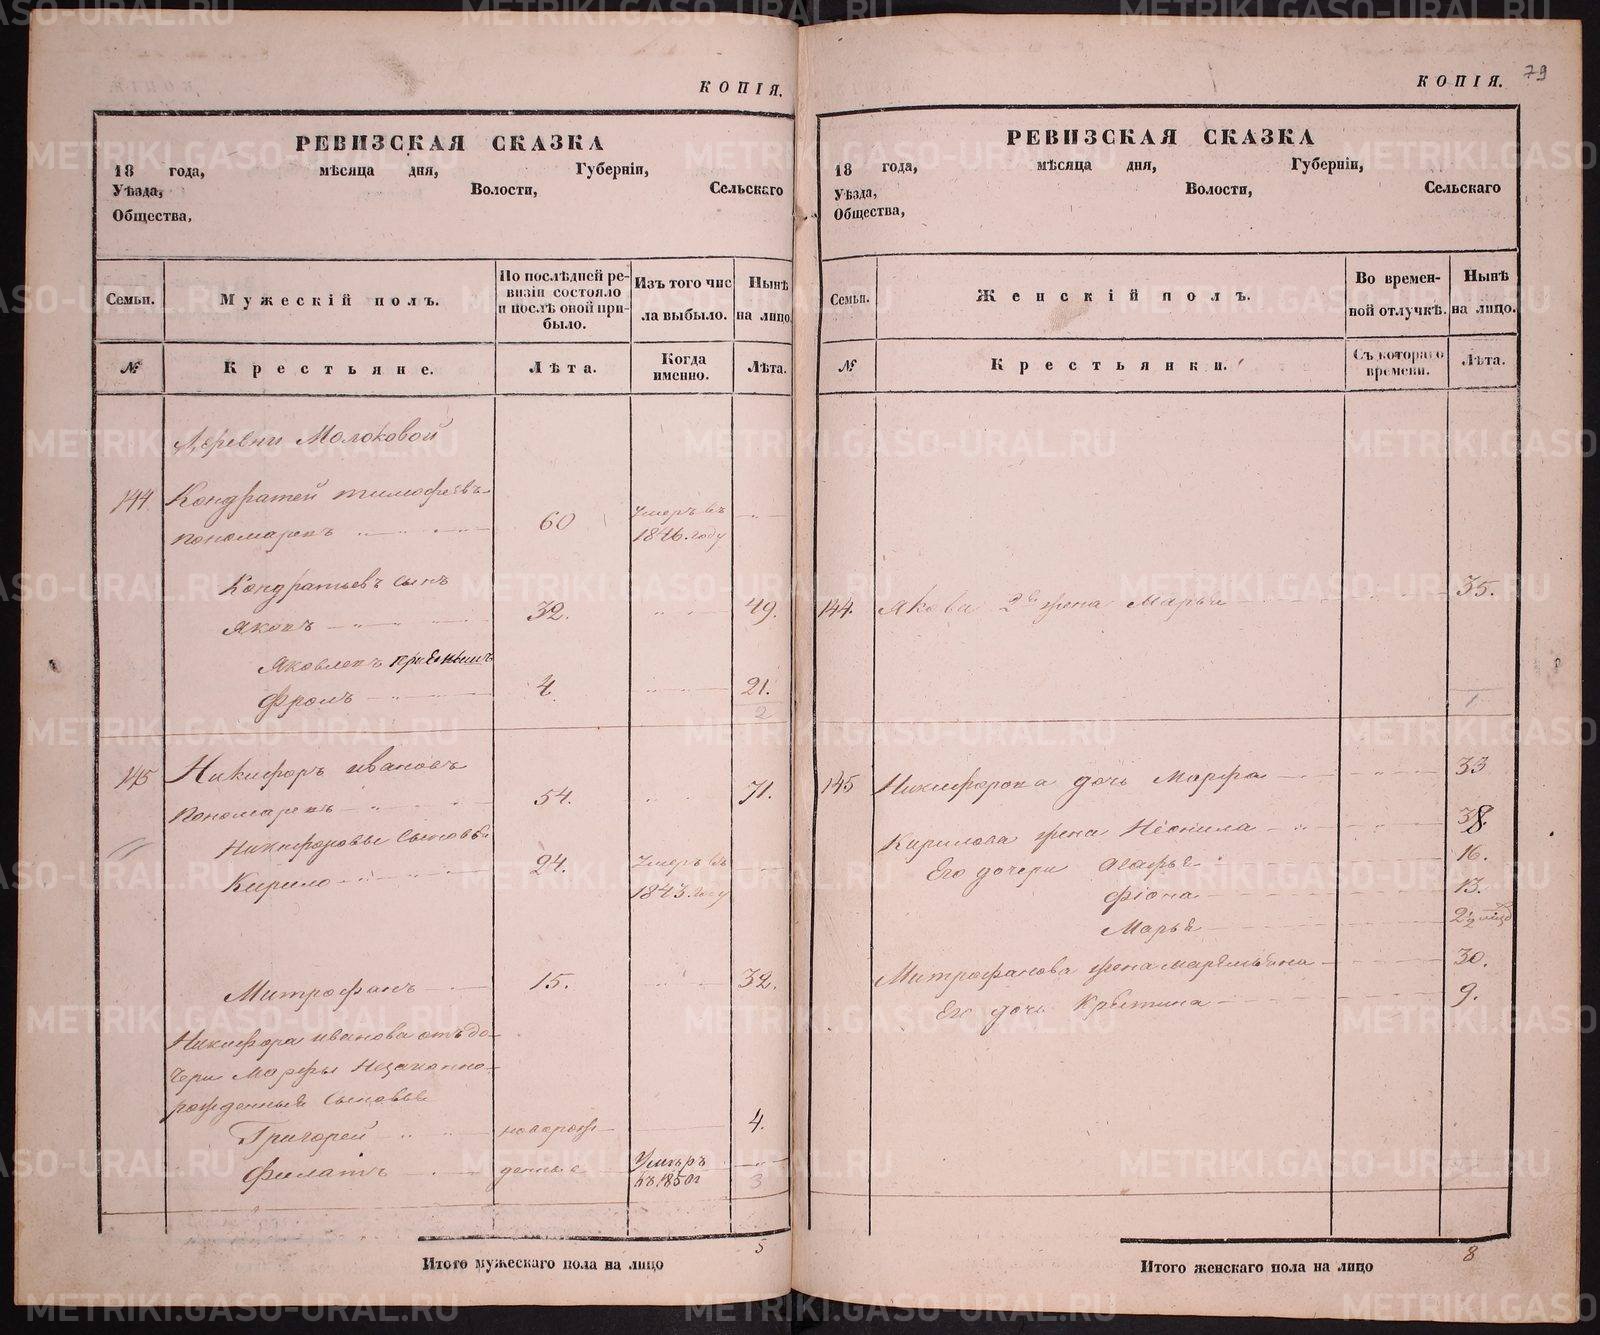 КОПІЯ.
РЕВИЗСКАЯ СКАЗКА
18 года, мѣсяца дня, Губерніи,
Уѣзда, Волости, Сельскаго
Общества,
Семьи. Мужескій полъ. По послѣдней ревизіи состояло и послѣ оной прибыло. Изъ того числа выбыло. Нынѣ на лицо.
№ Крестьяне. Лѣта. Когда именно. Лѣта.
Деревни Молоковой
144 Кондратей тимофеевъ
пономаревъ 60 Умеръ въ 1846. году
Кондратьевъ сынъ
Яковъ 32. 49.
Яковлевъ приемышъ
Фролъ 4. 21.
2
145 Никифоръ ивановъ
пономаревъ 54. 71.
Никифоровы сыновья
Кирило 24. Умеръ въ 1843. году
Митрофанъ 15. 32.
Никифора иванова отъ до-
чери Марфы незаконно-
рожденныя сыновья
Григорей новорож- 4.
Филатъ денные Умеръ въ 1850 г
3
5
Итого мужескаго пола на лицо
КОПІЯ. 79
РЕВИЗСКАЯ СКАЗКА
18 года, мѣсяца дня, Губерніи,
Уѣзда, Волости, Сельскаго
Общества,
Семьи. Женскій полъ. Во временной отлучкѣ. Нынѣ на лицо.
№ Крестьянки. Съ котораго времени. Лѣта.
144. Якова 2я жена Марья 35.
1
145 Никифорова дочь Марфа 33
Кирилова жена Неонила 38.
Его дочери Агафья 16.
Фіона 13.
Марья 2½
Митрофанова жена маремьяна 30.
Его дочь Крестина 9.
8
Итого женскаго пола на лицо
METRIKI.GASO-URAL.RU